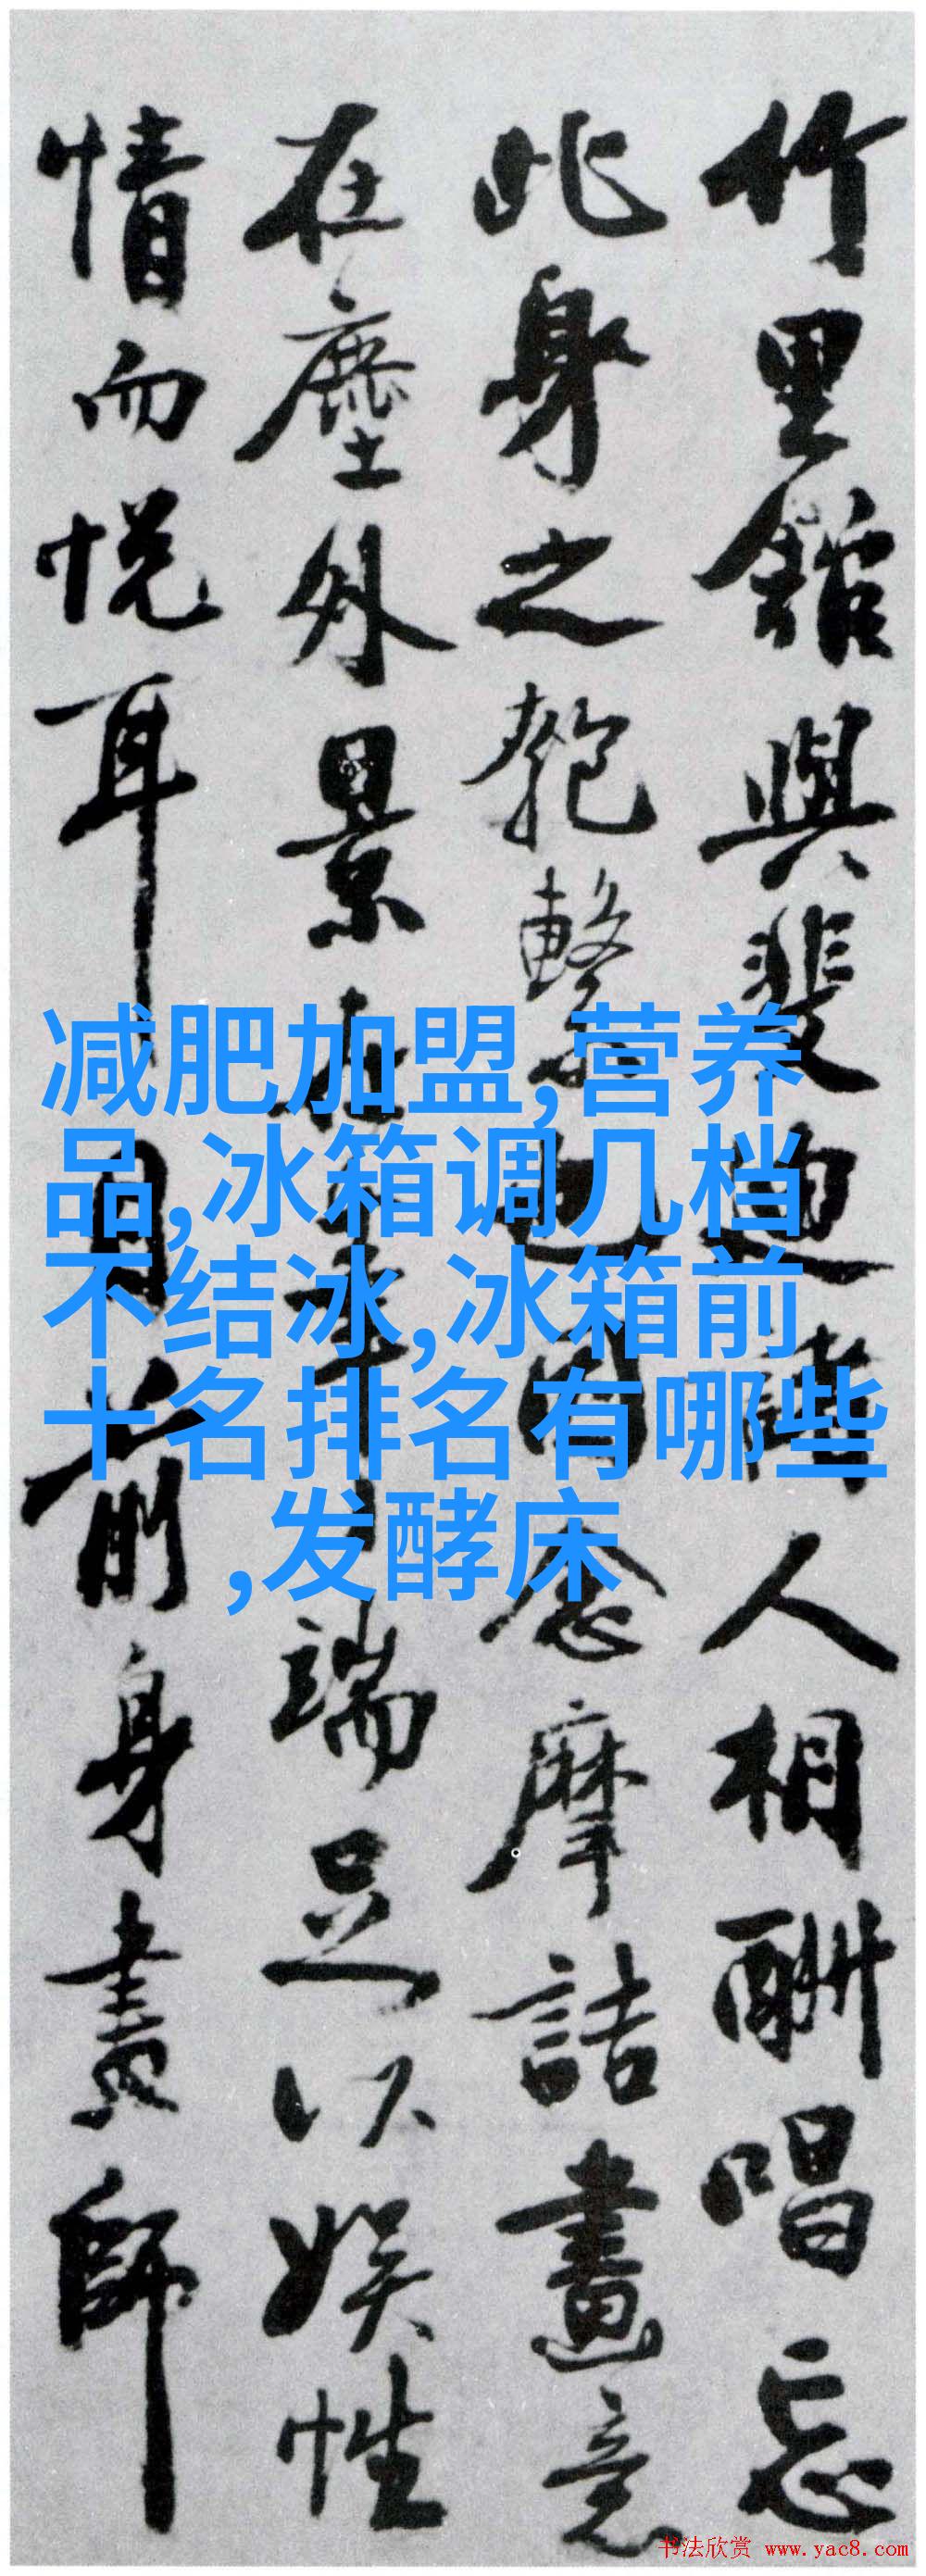 竹里館與裴迪諸人相酬唱忘
此身之匏繫也因念摩詰畫意
在塵外景在筆端足以娱性
情而悦耳目前身畫師
减肥加盟,营养
品,冰箱调几档
不结冰,冰箱前
十名排名有哪些
,发酵床
书法欣赏 www.yac8.com